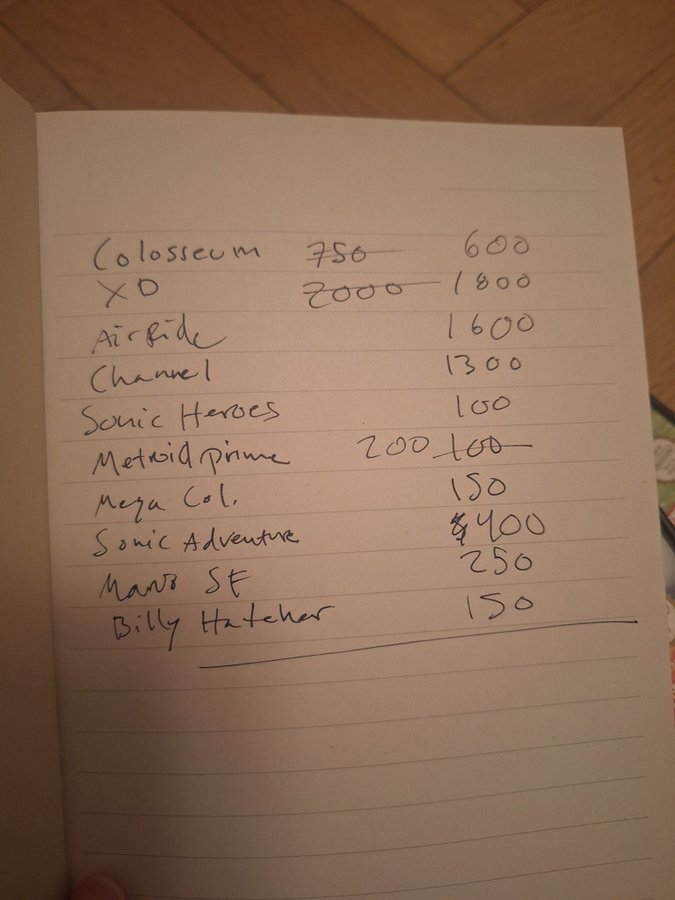 Colosseum 750 600
XD 2000 1800
AirRide 1600
Channel 1300
Sonic Heroes 100
Metroid prime 200 100
Mega Col. 150
Sonic Adventure 400
SF 250
Billy Hatcher 150